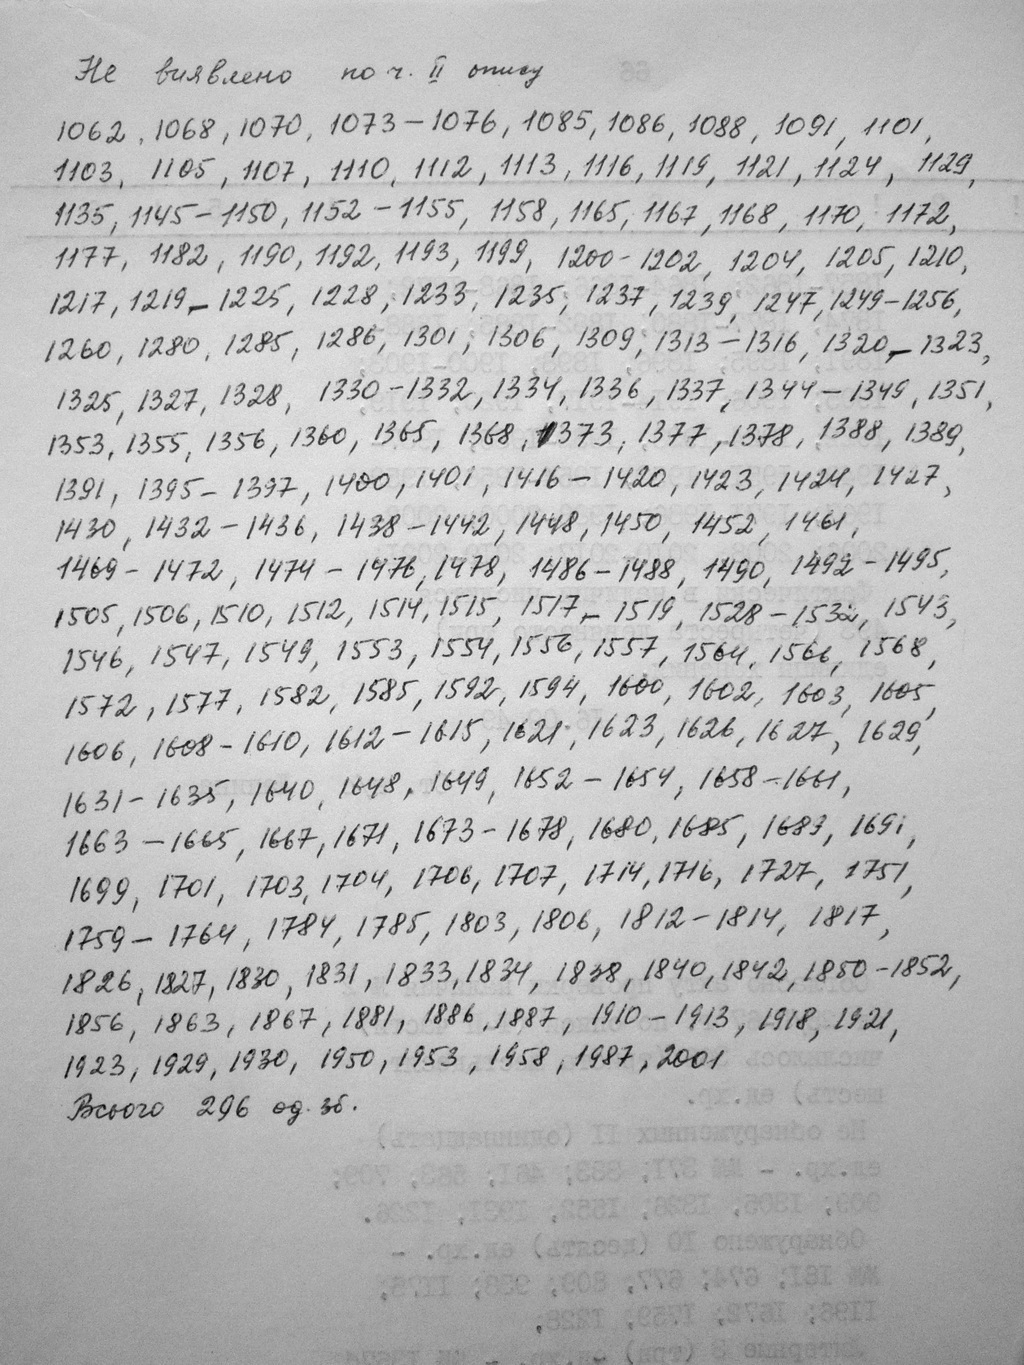 Не виявлено по ч. II опису
1062, 1068, 1070, 1073 – 1076, 1085, 1086, 1088, 1091, 1101,
1103, 1105, 1107, 1110, 1112, 1113, 1116, 1119, 1121, 1124, 1129,
1135, 1145 – 1150, 1152 – 1155, 1158, 1165, 1167, 1168, 1170, 1172,
1177, 1182, 1190, 1192, 1193, 1199, 1200 - 1202, 1204, 1205, 1210,
1217, 1219 – 1225, 1228, 1233, 1235, 1237, 1239, 1247, 1249 – 1256,
1260, 1280, 1285, 1286, 1301, 1306, 1309, 1313 – 1316, 1320 – 1323,
1325, 1327, 1328, 1330 – 1332, 1334, 1336, 1337, 1344 – 1349, 1351,
1353, 1355, 1356, 1360, 1365, 1368, 1373, 1377, 1378, 1388, 1389,
1391, 1395 – 1397, 1400, 1401, 1416 – 1420, 1423, 1424, 1427,
1430, 1432 – 1436, 1438 – 1442, 1448, 1450, 1452, 1461,
1469 – 1472, 1474 – 1476, 1478, 1486 – 1488, 1490, 1492 – 1495,
1505, 1506, 1510, 1512, 1514, 1515, 1517 – 1519, 1528 – 1532, 1543,
1546, 1547, 1549, 1553, 1554, 1556, 1557, 1564, 1566, 1568,
1572, 1577, 1582, 1585, 1592, 1594, 1600, 1602, 1603, 1605,
1606, 1608 – 1610, 1612 – 1615, 1621, 1623, 1626, 1627, 1629,
1631 – 1635, 1640, 1648, 1649, 1652 – 1654, 1658 – 1661,
1663 – 1665, 1667, 1671, 1673 – 1678, 1680, 1685, 1689, 1691,
1699, 1701, 1703, 1704, 1706, 1707, 1714, 1716, 1727, 1751,
1759 – 1764, 1784, 1785, 1803, 1806, 1812 – 1814, 1817,
1826, 1827, 1830, 1831, 1833, 1834, 1838, 1840, 1842, 1850 – 1852,
1856, 1863, 1867, 1881, 1886, 1887, 1910 – 1913, 1918, 1921,
1923, 1929, 1930, 1950, 1953, 1958, 1987, 2001
Всього 296 од. зб.